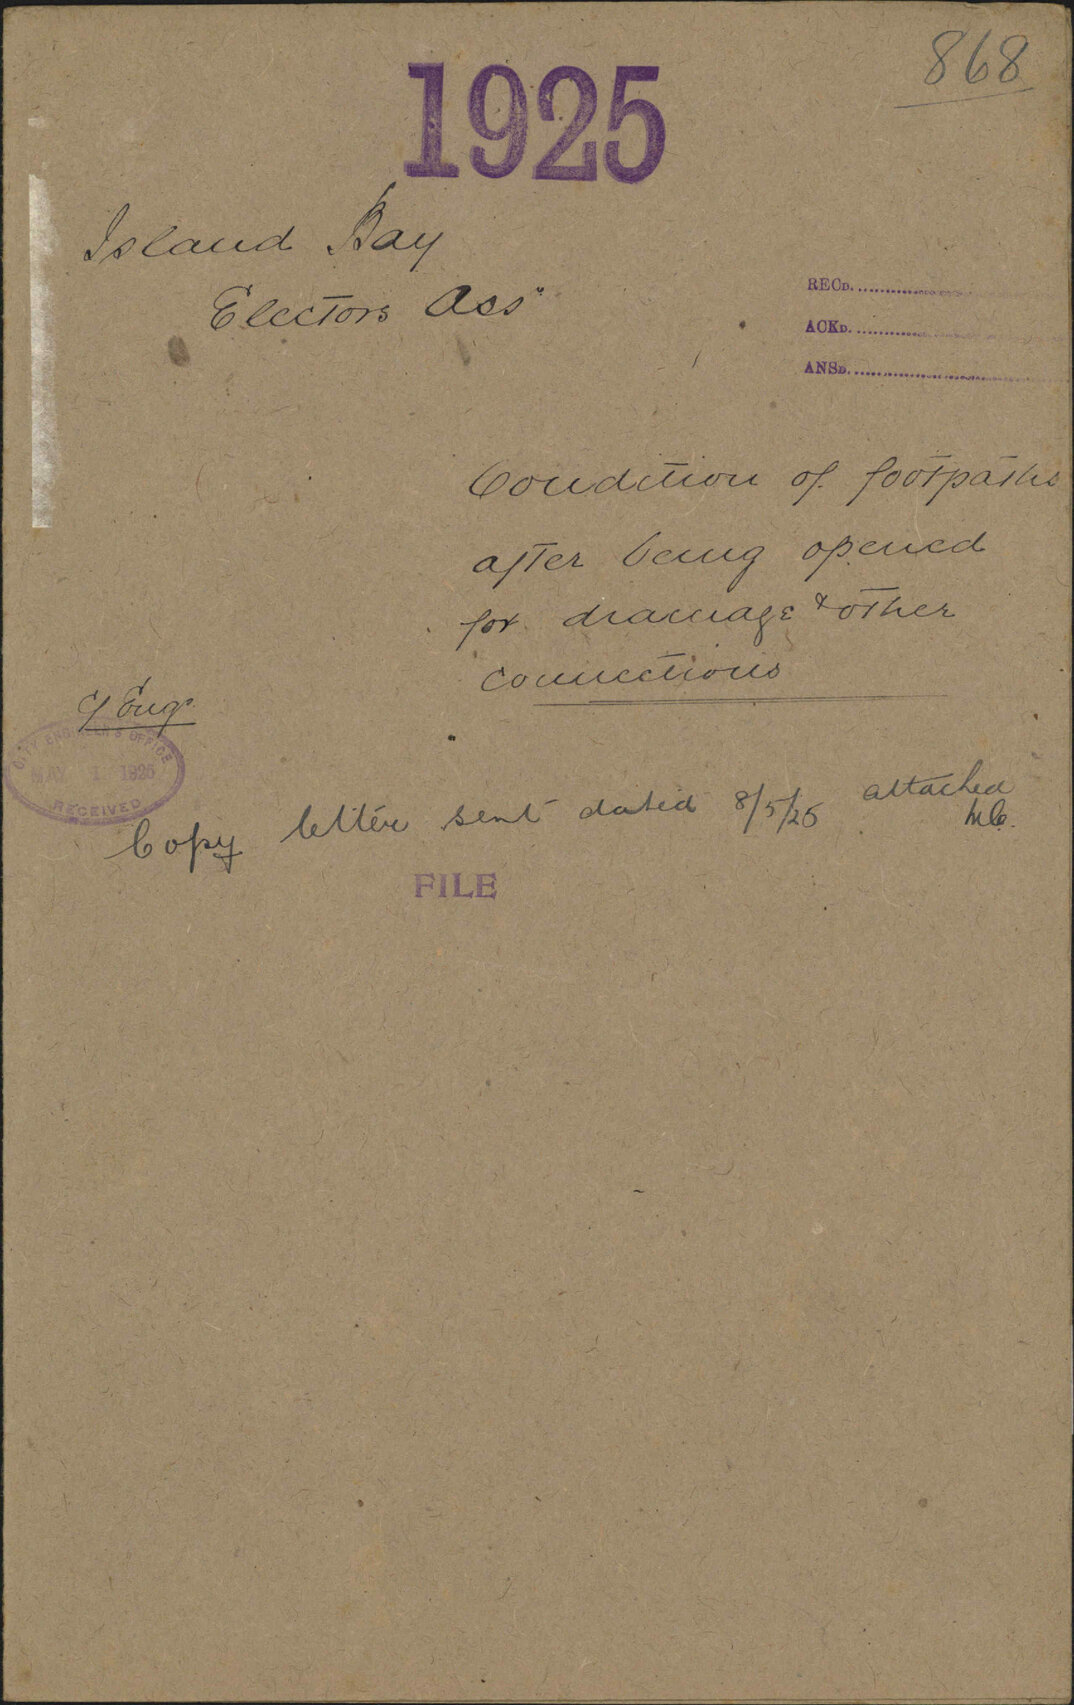 868
1925
Island Bay
Electors Assn
RECD.
ACKD.
ANSD.
Condition of footpaths
after being opened
for drainage & other
connections
C/ Engr
CITY ENGINEER'S OFFICE
MAY 1 1925
RECEIVED
Copy letter sent dated 8/5/25 attached
FILE